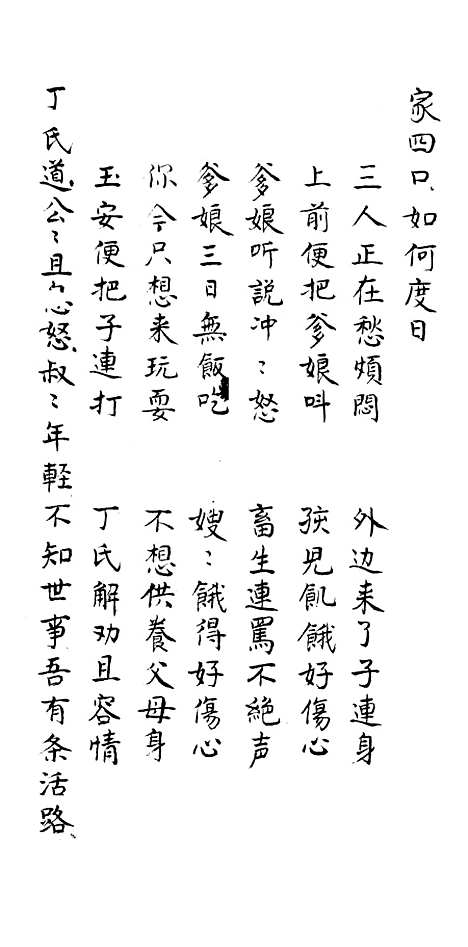 家四口、如何度日
三人正在愁煩悶　外边来了子連身
上前便把爹娘呌　孩児飢餓好傷心
爹娘听説冲〻怒　畜生連罵不絶声
爹娘三日無飯吃　嫂〻餓得好傷心
你今只想来玩耍　不想供養父母身
玉安便把子連打　丁氏解劝且容情
丁氏道、公〻且勺心怒、叔〻年軽不知世事吾有条活路、